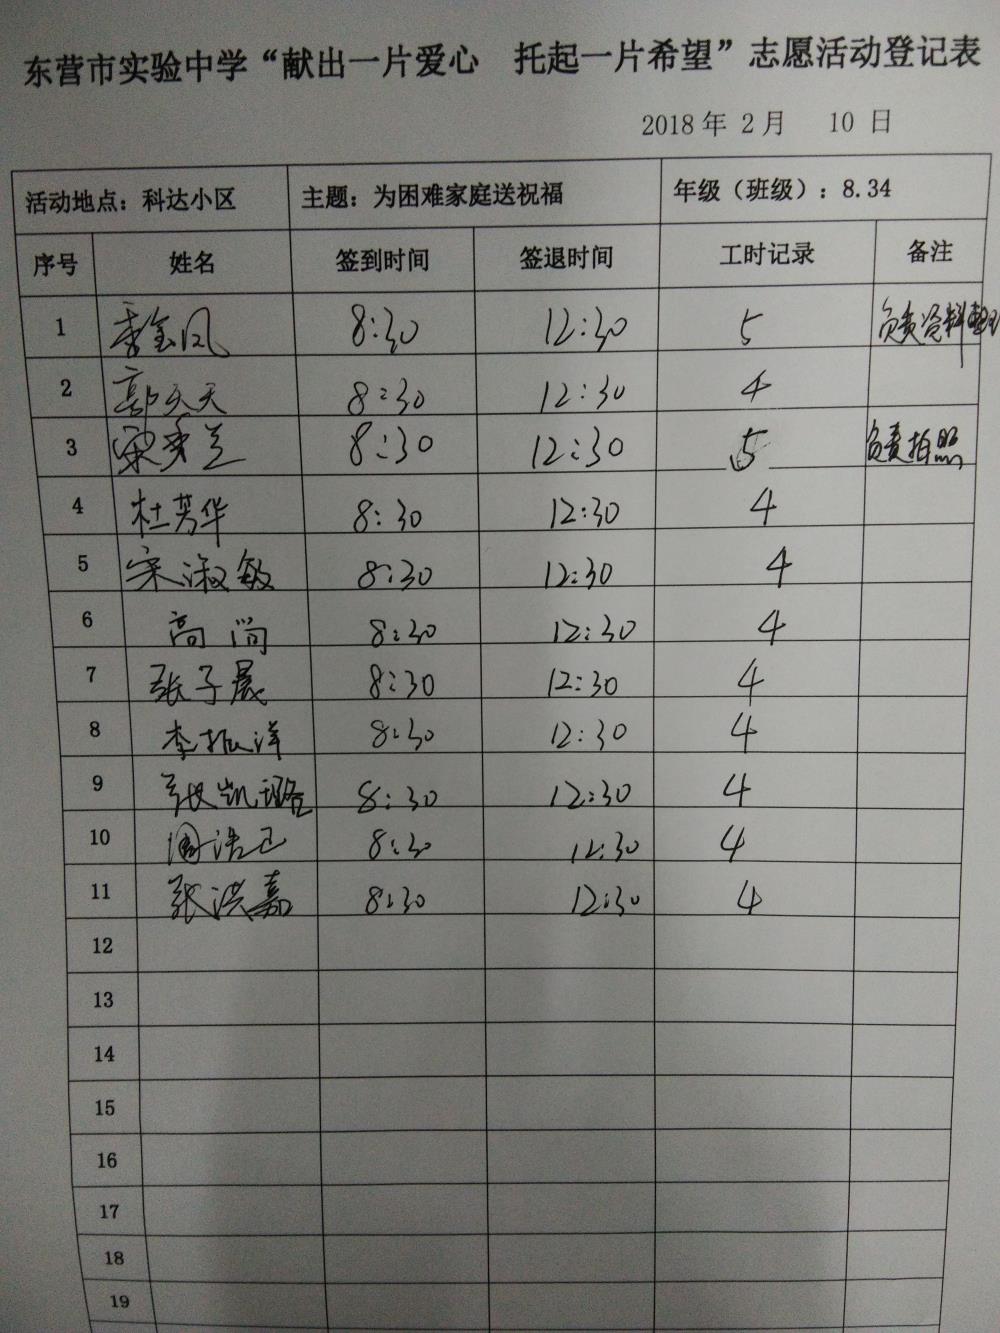 东营市实验中学“献出一片爱心 托起一片希望”志愿活动登记表
2018 年 2 月 10 日
活动地点：科达小区 主题：为困难家庭送祝福 年级（班级）：8.34
序号 姓名 签到时间 签退时间 工时记录 备注
1 季金凤 8:30 12:30 5 负责资料整理
2 郭天天 8:30 12:30 4
3 宋秀兰 8:30 12:30 5 负责拍照
4 杜芳华 8:30 12:30 4
5 宋淑敏 8:30 12:30 4
6 高尚 8:30 12:30 4
7 张子晨 8:30 12:30 4
8 李振洋 8:30 12:30 4
9 张凯璐 8:30 12:30 4
10 周浩已 8:30 12:30 4
11 张洪嘉 8:30 12:30 4
12
13
14
15
16
17
18
19